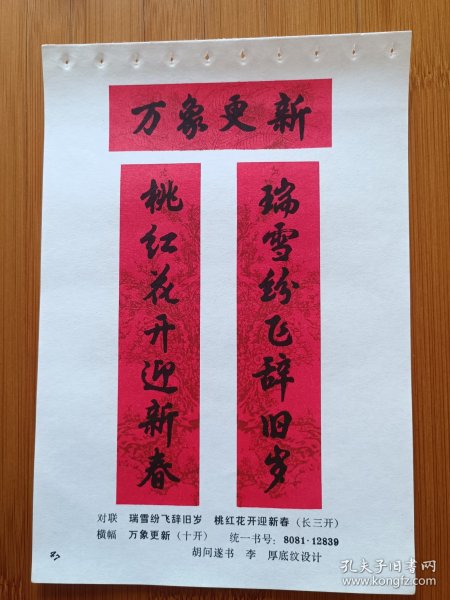 万象更新
瑞雪纷飞辞旧岁
桃红花开迎新春
对联 瑞雪纷飞辞旧岁 桃红花开迎新春（长三开）
横幅 万象更新（十开） 统一书号：8081·12839
胡问遂书 李 厚底纹设计
47
孔夫子旧书网
www.kongfz.com